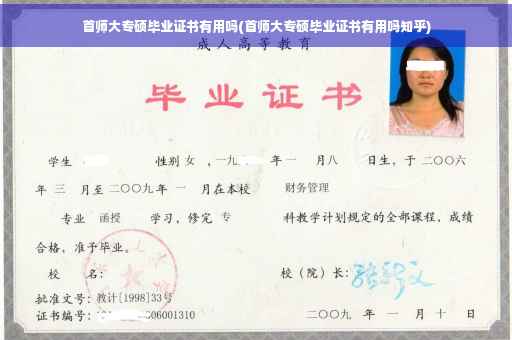 首师大专硕毕业证书有用吗(首师大专硕毕业证书有用吗知乎)
成人高等教育
毕业证书
学生 性别 女 ,一九 年一 月八 日生,于二〇〇六
年 三 月至二〇〇九年 一 月在本校 财务管理
专业 函授 学习,修完 专 科教学计划规定的全部课程,成绩
合格,准予毕业。
校 名: 校(院)长:
批准文号:教计[1998]33号
证书编号: 06001310 二〇〇九 年 一 月 十 日